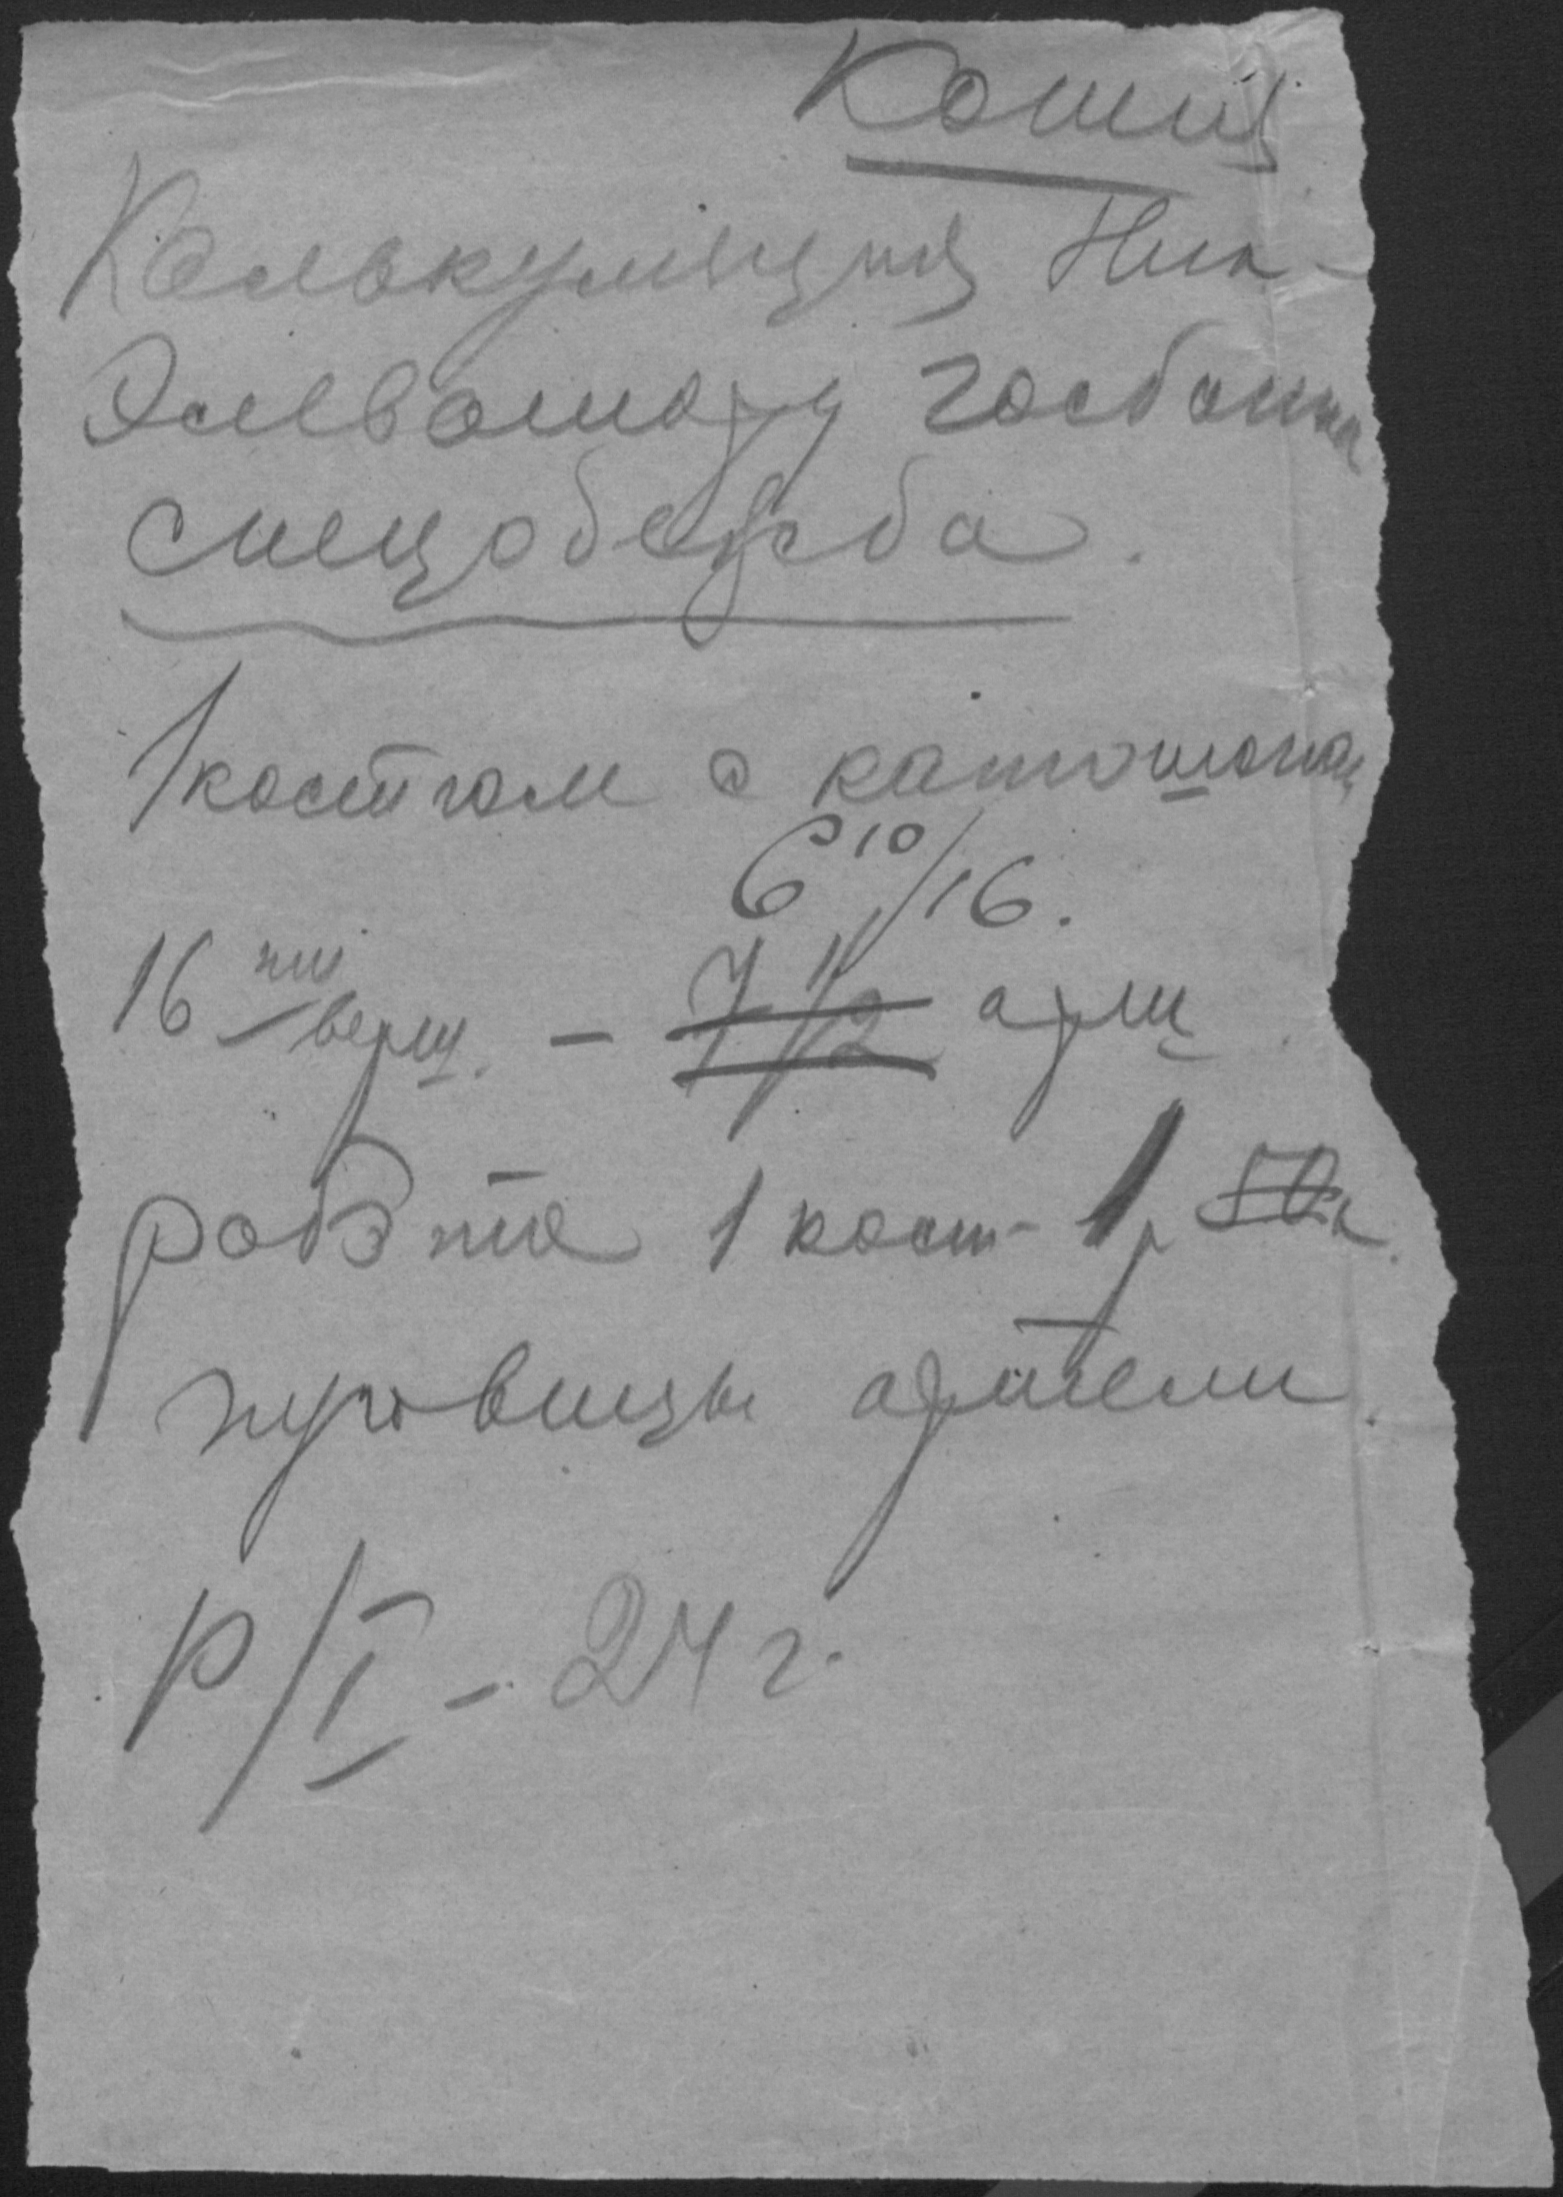 Копия
Калькуляция Ник.
Элеватору госбанка
спецодежда.
1 костюм с капюшоном
6 10/16.
16 ти верш. – 7 1/2 арш.
работа 1 кост – 1 р 50 к.
пуговицы артели.
Р/I – 24 г.